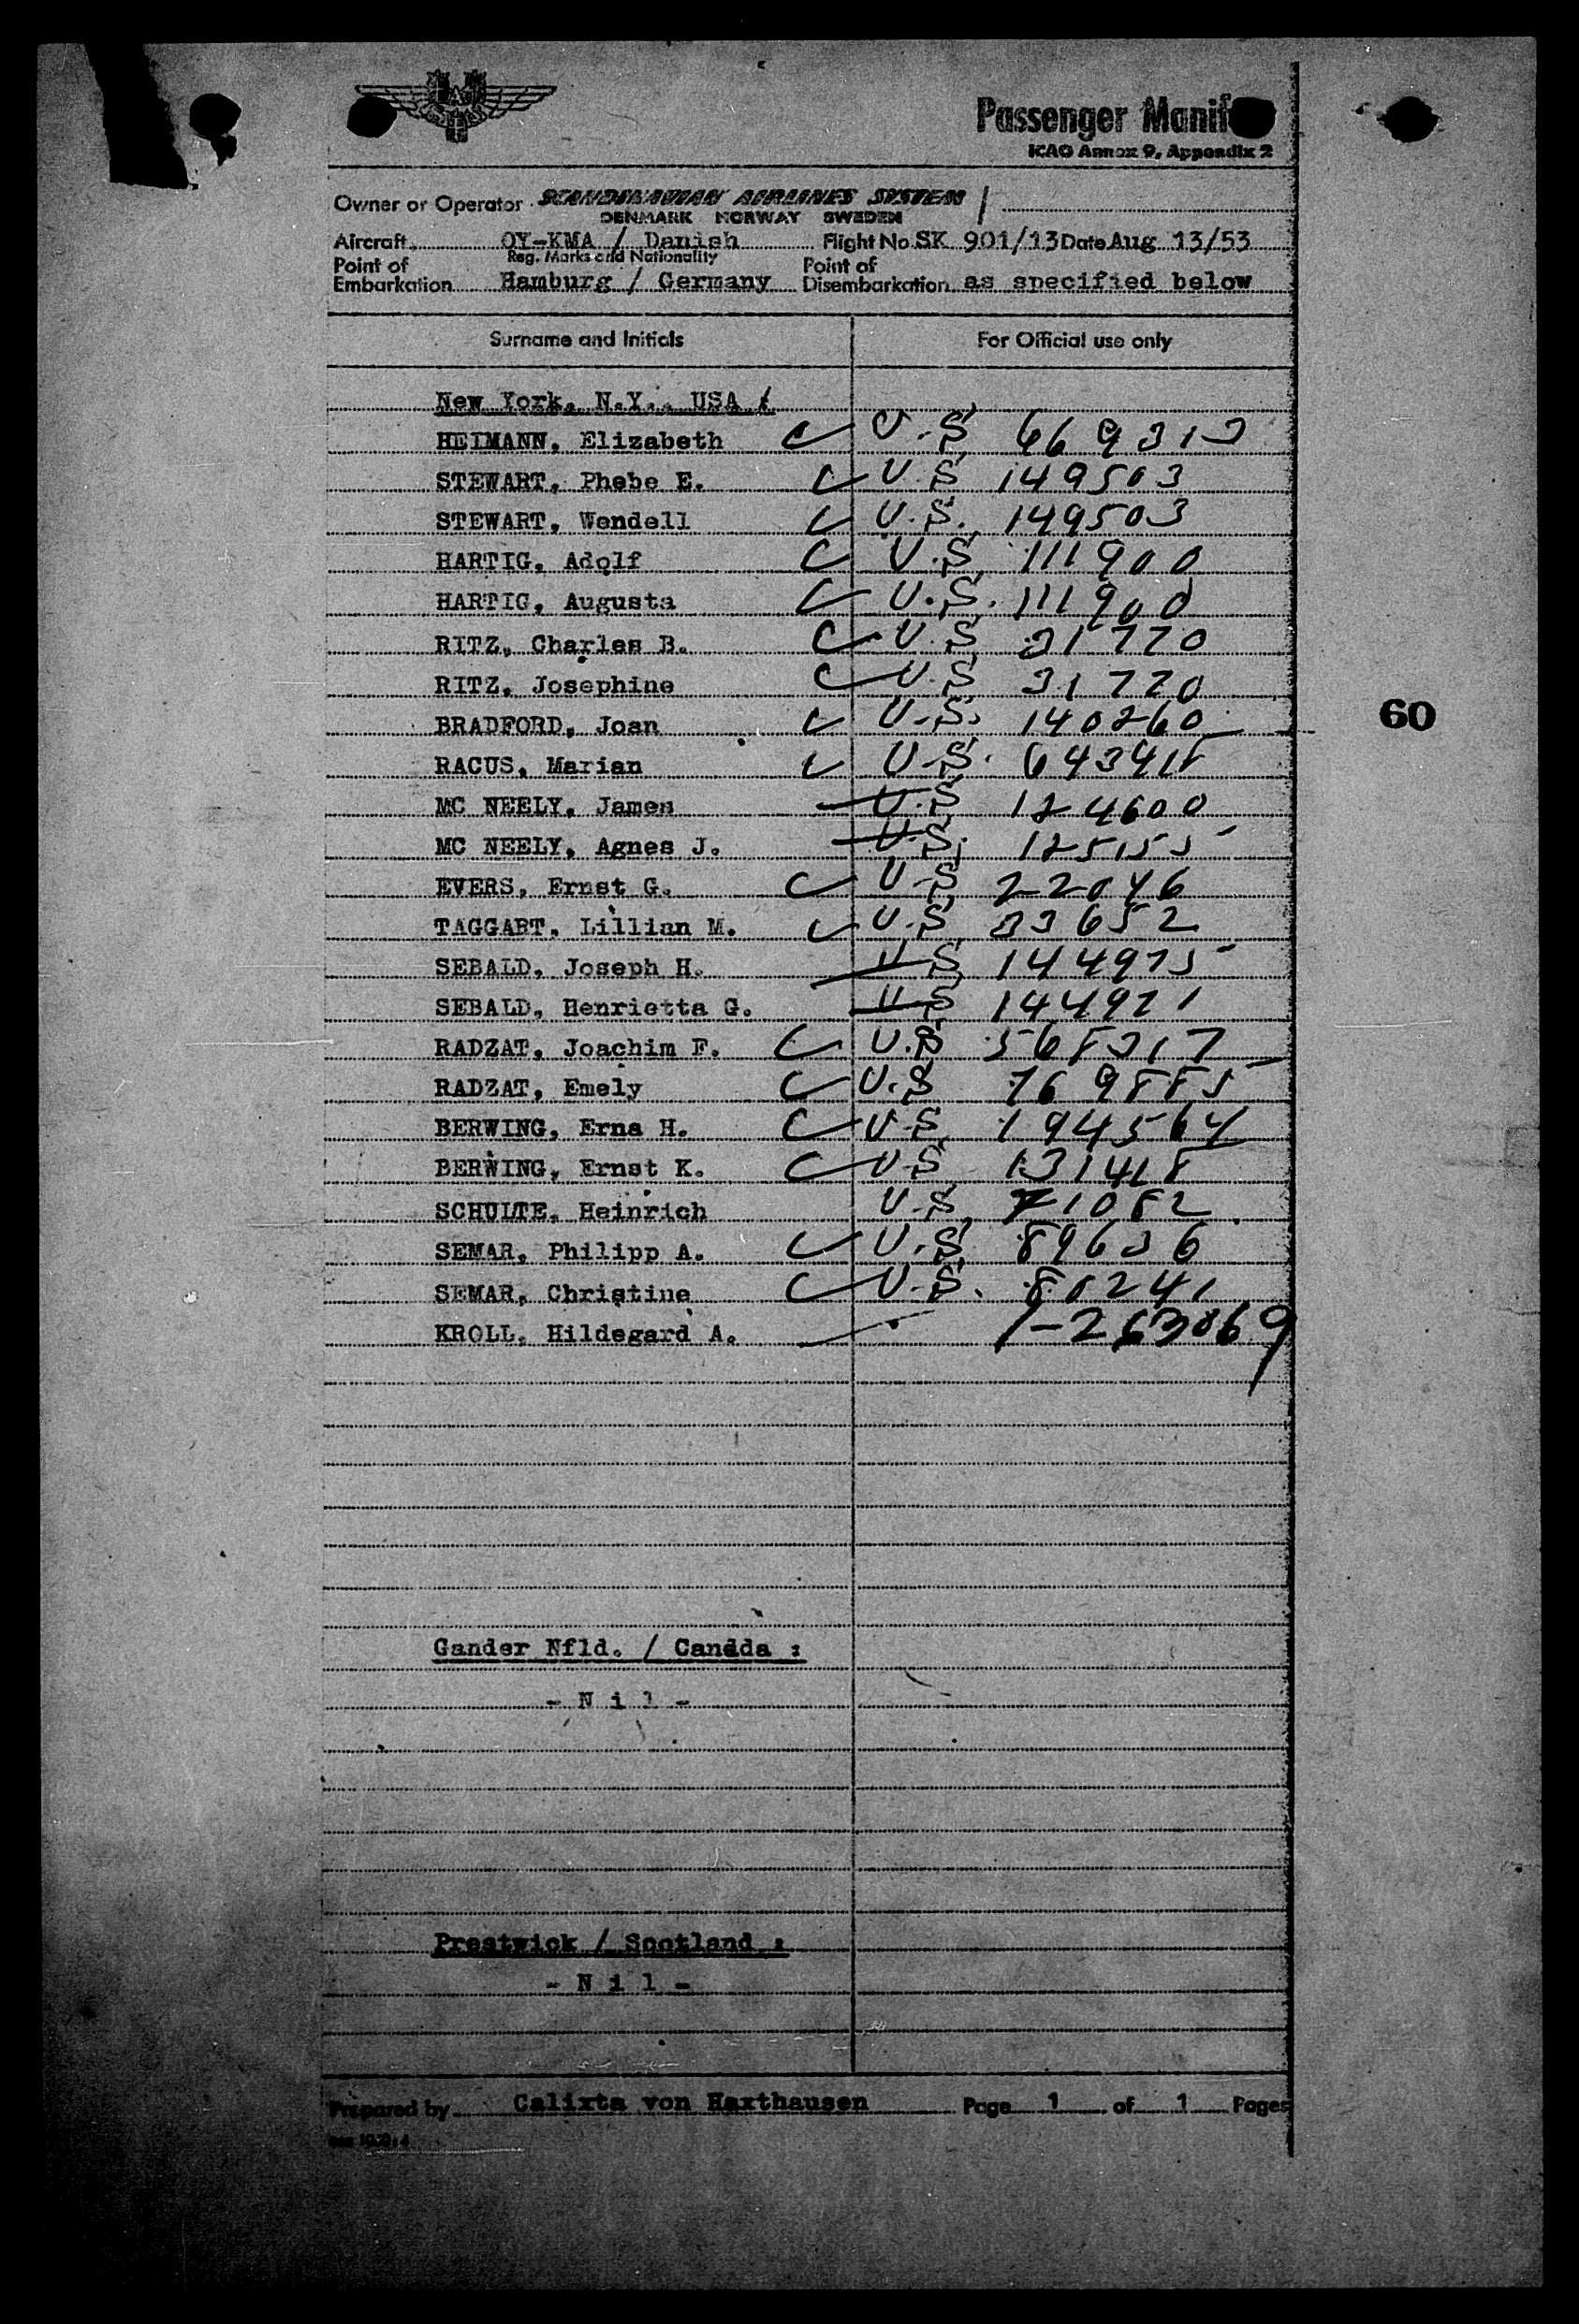 Passenger Manif
ICAO Annex 9, Appendix 2
Owner or Operator SCANDINAVIAN AIRLINES SYSTEM /
DENMARK NORWAY SWEDEN
Aircraft OY-KMA / Danish Flight No. SK 901/13 Date Aug 13/53
Reg. Marks and Nationality
Point of Embarkation Hamburg / Germany Point of Disembarkation as specified below
Surname and Initials For Official use only
New York, N.Y., USA :
HEIMANN, Elizabeth U.S 669313
STEWART, Phebe E. U.S 149503
STEWART, Wendell U.S. 149503
HARTIG, Adolf U.S 111900
HARTIG, Augusta U.S. 111900
RITZ, Charles B. U.S 31770
RITZ, Josephine U.S 31770
BRADFORD, Joan U.S. 140260
RACUS, Marian U.S. 643418
MC NEELY, James U.S 124600
MC NEELY, Agnes J. U.S. 125155
EVERS, Ernst G. U.S 22046
TAGGART, Lillian M. U.S 33652
SEBALD, Joseph H. U.S 144975
SEBALD, Henrietta G. U.S 144971
RADZAT, Joachim F. U.S 568317
RADZAT, Emely U.S 769885
BERWING, Erna H. U.S 194564
BERWING, Ernst K. U.S 131418
SCHULTE, Heinrich U.S 71082
SEMAR, Philipp A. U.S 89636
SEMAR, Christine U.S. 80241
KROLL, Hildegard A. 1-263069
60
Gander Nfld. / Canada :
- N i l -
Prestwick / Scotland :
- N i l -
Prepared by Calixta von Haxthausen Page 1 of 1 Pages